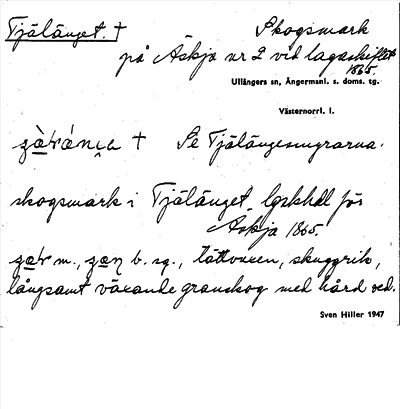 Tjälänget. † Skogsmark
på Äskja nr 2 vid lagaskiftet
1865.
Ullångers sn, Ångermanl. s. doms. tg.
Västernorrl. l.
† Se Tjälängesmyrarna.
skogsmark i Tjälänget, lgskhdl för
Äskja 1865.
m., b. sg., tättvuxen, skuggrik,
långsamt växande granskog med hård ved.
Sven Hiller 1947